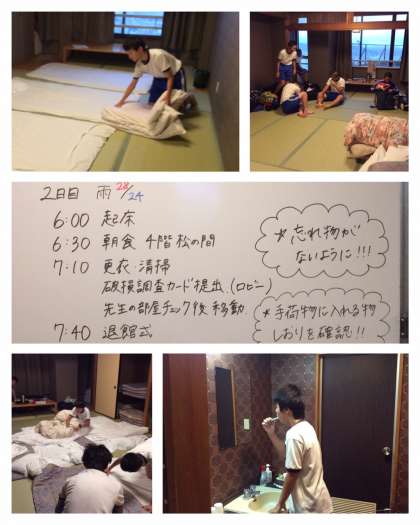 2日目 雨 28/24
6:00 起床
6:30 朝食 4階 松の間
7:10 更衣・清掃
破損調査カード提出(ロビー)
先生の部屋チェック後 移動
7:40 退館式
*忘れ物が
ないように!!!
*手荷物に入れる物
しおりを確認!!